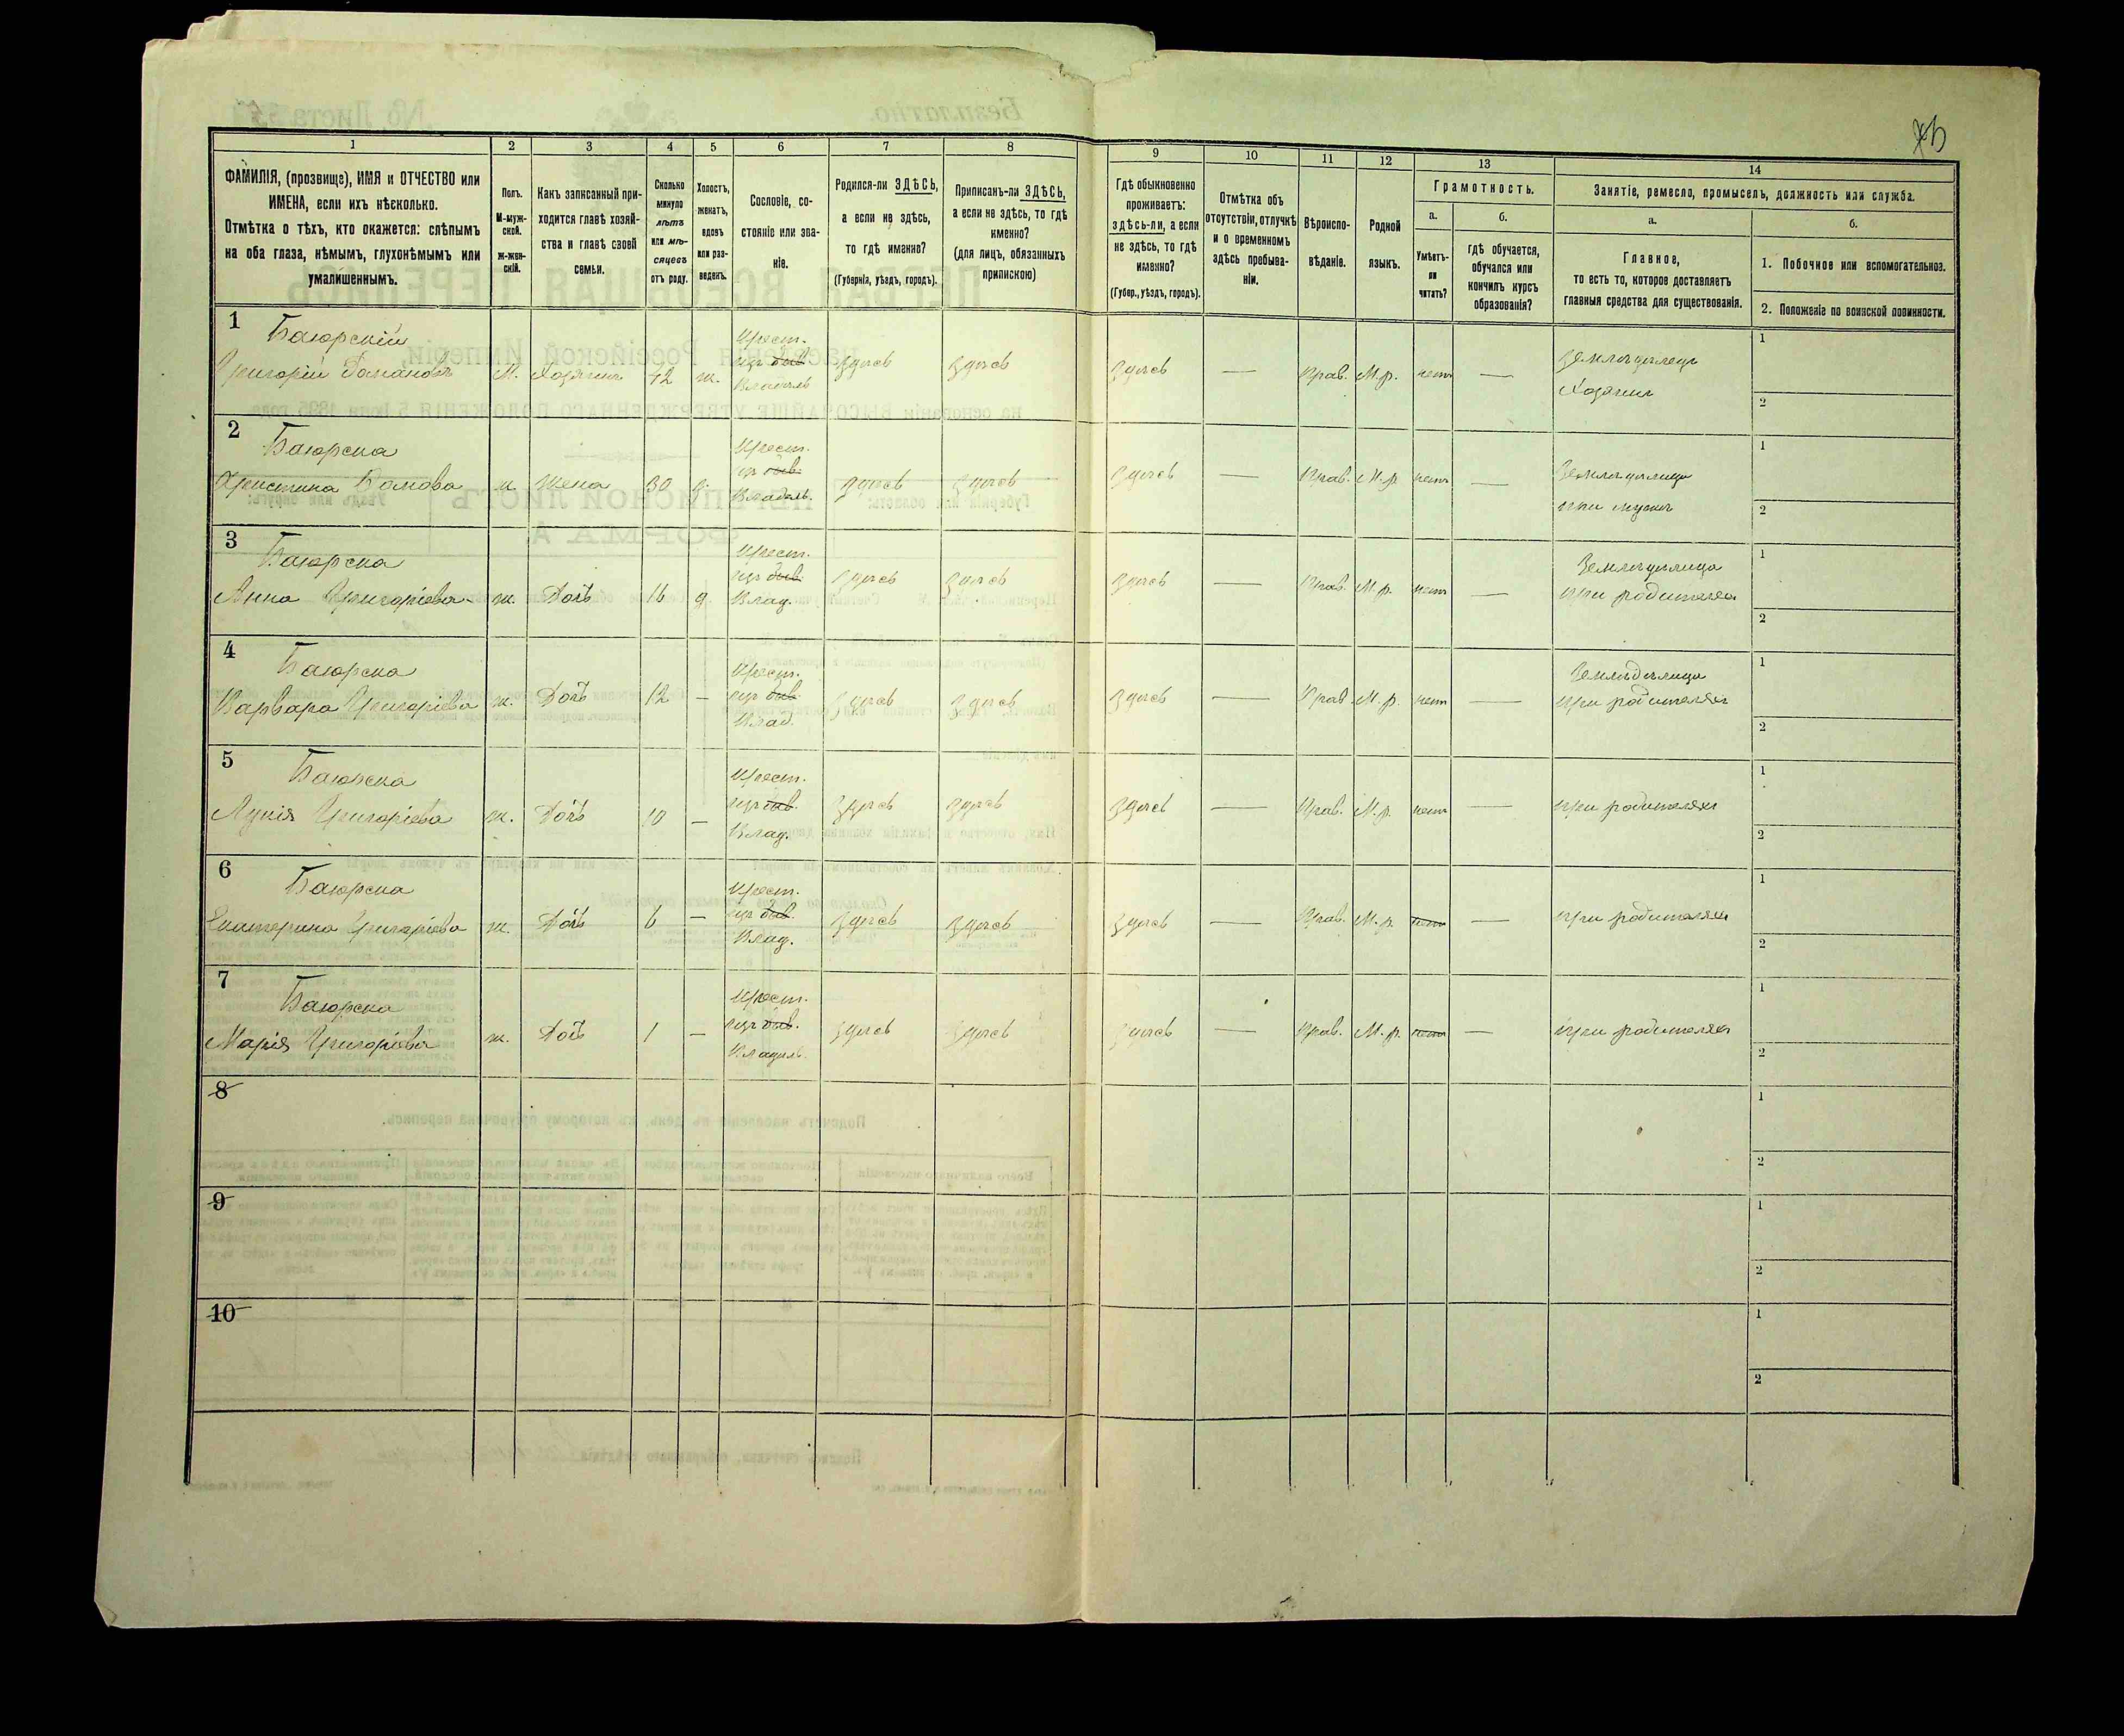 1 2 3 4 5 6 7 8 9 10 11 12 13 14
ФАМИЛІЯ, (прозвище), ИМЯ и ОТЧЕСТВО или
ИМЕНА, если ихъ нѣсколько.
Отмѣтка о тѣхъ, кто окажется: слѣпымъ
на оба глаза, нѣмымъ, глухонѣмымъ или
умалишеннымъ.
Полъ.
М-муж-
ской.
ж-жен-
скій.
Какъ записанный при-
ходится главѣ хозяй-
ства и главѣ своей
семьи.
Сколько
минуло
лѣтъ
или мѣ-
сяцевъ
отъ роду.
Холостъ,
женатъ,
вдовъ
или раз-
веденъ.
Сословіе, со-
стояніе или зва-
ніе.
Родился-ли ЗДѢСЬ,
а если не здѣсь,
то гдѣ именно?
(Губернія, уѣздъ, городъ).
Приписанъ-ли ЗДѢСЬ,
а если не здѣсь, то гдѣ
именно?
(для лицъ, обязанныхъ
припискою)
Гдѣ обыкновенно
проживаетъ:
здѣсь-ли, а если
не здѣсь, то гдѣ
именно?
(Губер., уѣздъ, городъ).
Отмѣтка объ
отсутствіи, отлучкѣ
и о временномъ
здѣсь пребыва-
ніи.
Вѣроиспо-
вѣданіе.
Родной
языкъ.
Грамотность.
а.
Умѣетъ-
ли
читать?
б.
гдѣ обучается,
обучался или
кончилъ курсъ
образованія?
Занятіе, ремесло, промыселъ, должность или служба.
а.
Главное,
то есть то, которое доставляетъ
главныя средства для существованія.
б.
1. Побочное или вспомогательное.
2. Положеніе по воинской повинности.
1
Баюрскій
Григорій
М. Хозяинъ 42 ж.
Крест.
изъ быв
Владѣль
Здѣсь Здѣсь Здѣсь — Прав. М.р. нет —
Земледѣлецъ
Хозяинъ
1
2
2
Баюрска
Христина
ж. Жена 30 з.
Крест.
изъ быв.
Владѣль.
Здѣсь Здѣсь Здѣсь — Прав. М.р. нет —
Земледѣлица
при мужѣ
1
2
3
Баюрска
Анна Григоріева
ж. Дочь 16 д
Крест.
изъ быв.
Влад.
Здѣсь Здѣсь Здѣсь — Прав. М.р. нет —
Земледѣлица
при родителях
1
2
4
Баюрска
Варвара Григоріева
ж. Дочь 12 —
Крест.
изъ быв.
Влад.
Здѣсь Здѣсь Здѣсь — Прав. М.р. нет —
Земледѣлица
при родителях
1
2
5
Баюрска
Григоріева
ж. Дочь 10 —
Крест.
изъ быв.
Влад.
Здѣсь Здѣсь Здѣсь — Прав. М.р. нет —
при родителях
1
2
6
Баюрска
Екатерина Григоріева
ж. Дочь 6 —
Крест.
изъ быв.
Влад.
Здѣсь Здѣсь Здѣсь — Прав. М.р. нет —
при родителях
1
2
7
Баюрска
Марія Григоріева
ж. Дочь 1 —
Крест.
изъ быв.
Владѣль.
Здѣсь Здѣсь Здѣсь — Прав. М.р. нет —
при родителях
1
2
8
1
2
9
1
2
10
1
2